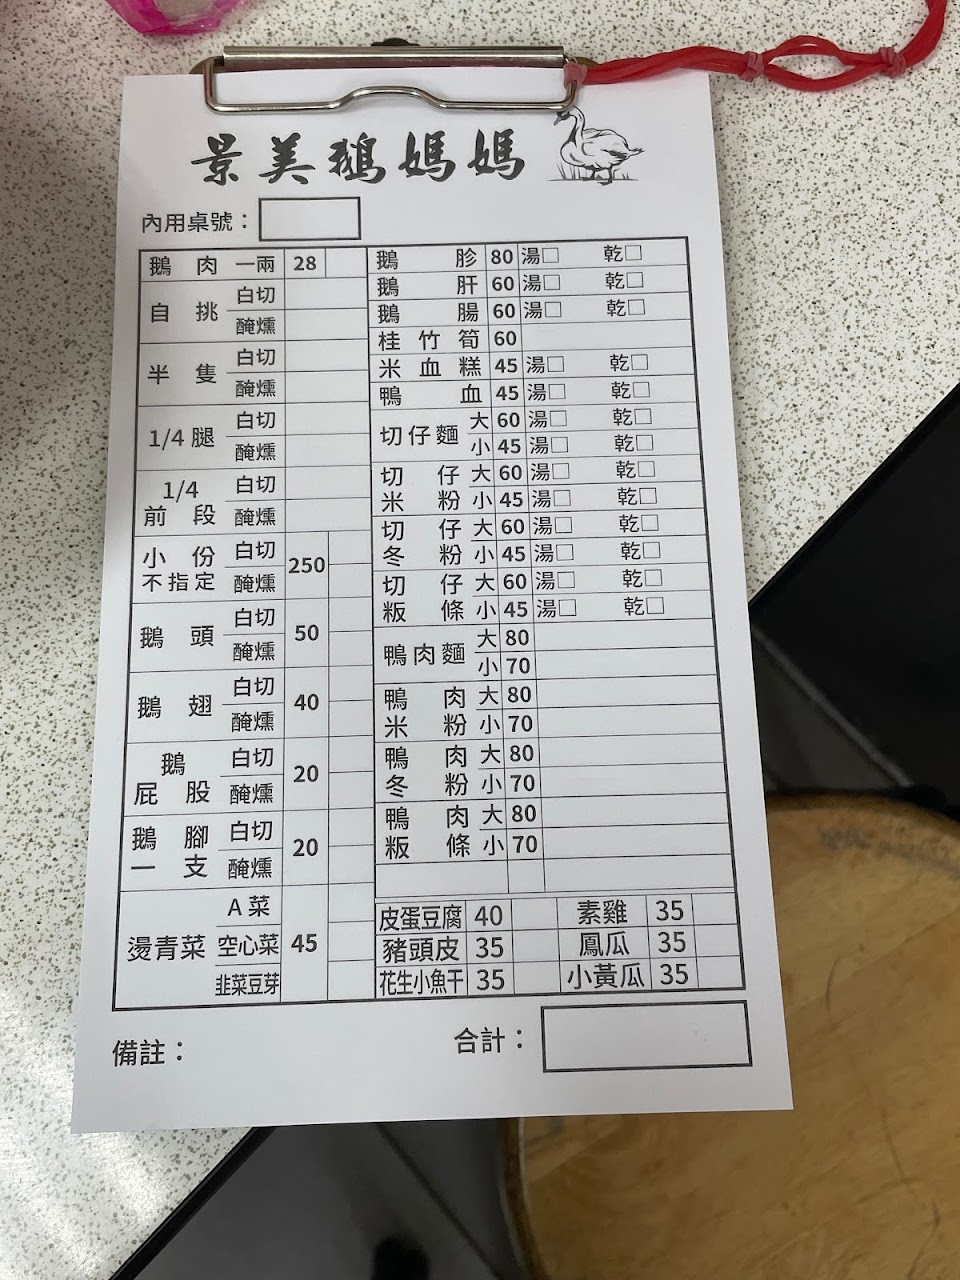 景美鵝媽媽
內用桌號：
鵝肉 一兩 28
自挑 白切
醃燻
半隻 白切
醃燻
1/4腿 白切
醃燻
1/4前段 白切
醃燻
小份不指定 白切 250
醃燻
鵝頭 白切 50
醃燻
鵝翅 白切 40
醃燻
鵝屁股 白切 20
醃燻
鵝腳一支 白切 20
醃燻
燙青菜 A菜 45
空心菜
韭菜豆芽
鵝胗 80 湯□ 乾□
鵝肝 60 湯□ 乾□
鵝腸 60 湯□ 乾□
桂竹筍 60
米血糕 45 湯□ 乾□
鴨血 45 湯□ 乾□
切仔麵 大 60 湯□ 乾□
小 45 湯□ 乾□
切仔米粉 大 60 湯□ 乾□
小 45 湯□ 乾□
切仔冬粉 大 60 湯□ 乾□
小 45 湯□ 乾□
切仔粄條 大 60 湯□ 乾□
小 45 湯□ 乾□
鴨肉麵 大 80
小 70
鴨肉米粉 大 80
小 70
鴨肉冬粉 大 80
小 70
鴨肉粄條 大 80
小 70
皮蛋豆腐 40 素雞 35
豬頭皮 35 鳳瓜 35
花生小魚干 35 小黃瓜 35
備註： 合計：